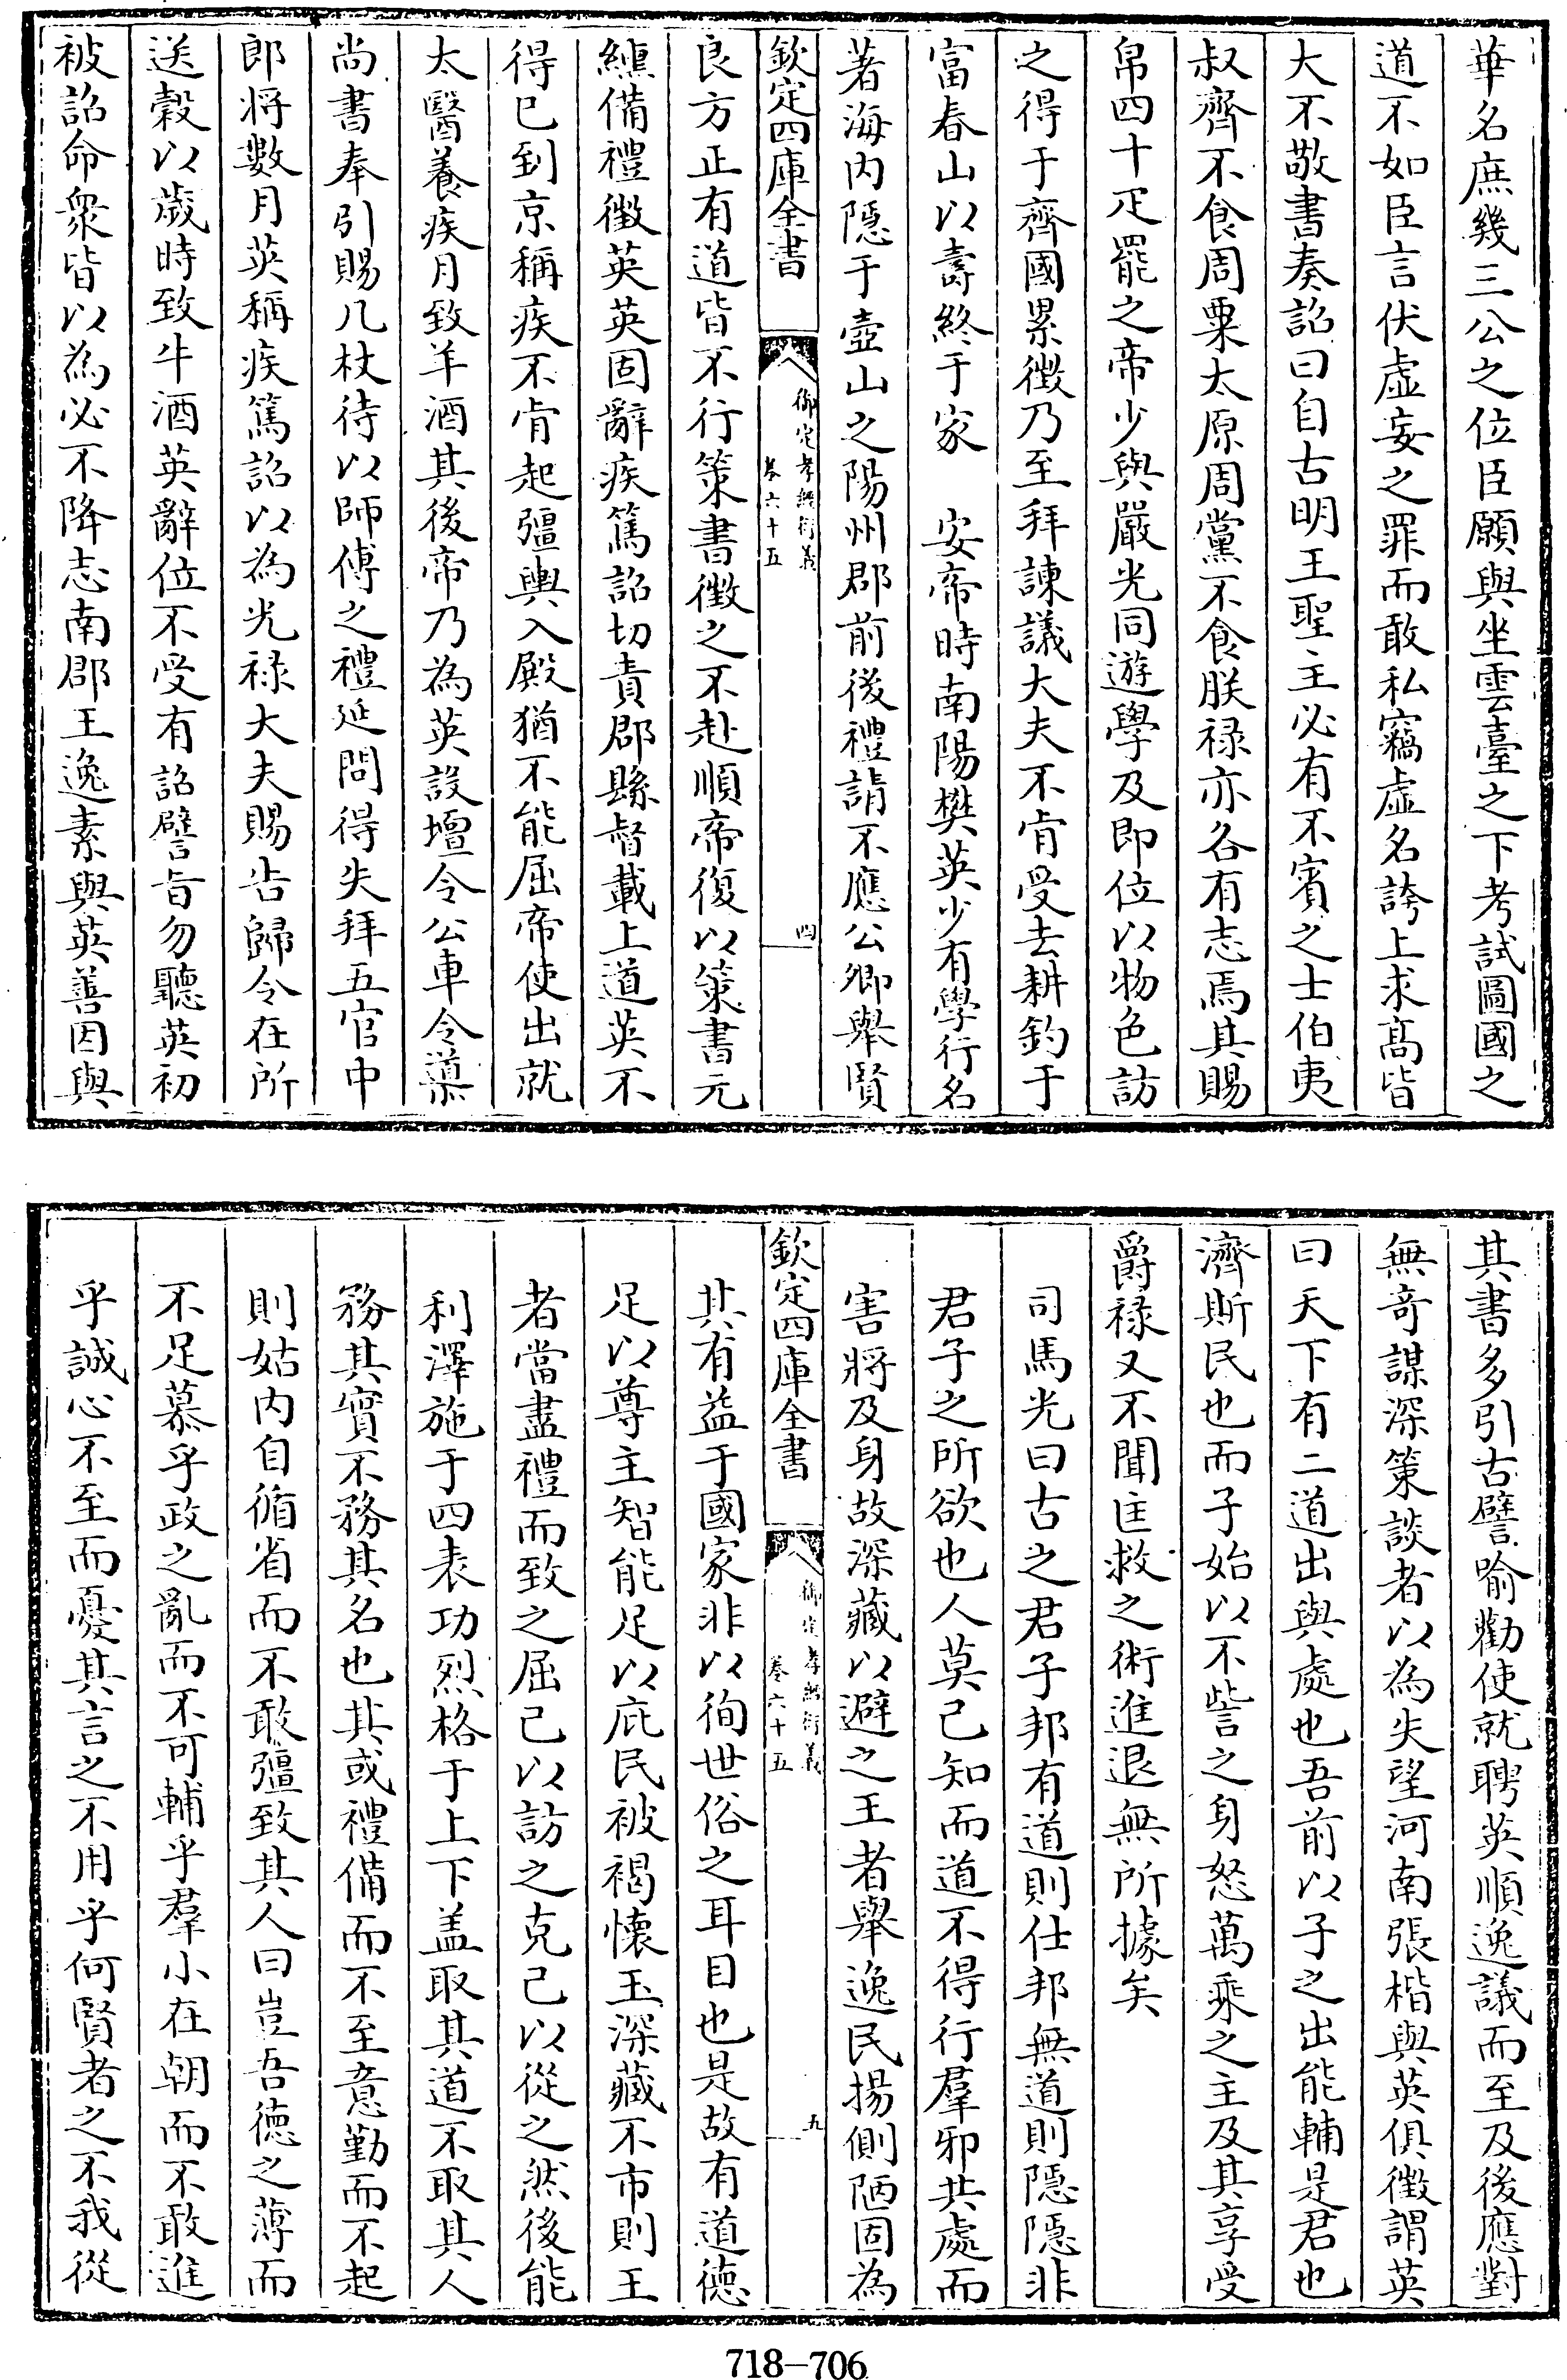 華名庶幾三公之位臣願與坐雲臺之下考試圖國之
道不如臣言伏虛妄之罪而敢私竊虛名誇上求髙皆
大不敬書奏詔曰自古明王聖主必有不賓之士伯夷
叔齊不食周粟太原周黨不食朕禄亦各有志焉其賜
帛四十疋罷之帝少與嚴光同遊學及即位以物色訪
之得于齊國累徵乃至拜諫議大夫不肯受去耕釣于
富春山以壽終于家　安帝時南陽樊英少有學行名
著海内隱于壺山之陽州郡前後禮請不應公卿舉賢
欽定四庫全書
御定孝經衍義
卷六十五
四
良方正有道皆不行策書徵之不赴順帝復以策書元
纁備禮徵英英固辭疾篤詔切責郡縣督載上道英不
得已到京稱疾不肯起彊輿入殿猶不能屈帝使出就
太醫養疾月致羊酒其後帝乃為英設壇令公車令導
尚書奉引賜几杖待以師傅之禮延問得失拜五官中
郎将數月英稱疾篤詔以為光禄大夫賜告歸令在所
送穀以歲時致牛酒英辭位不受有詔譬旨勿聽英初
被詔命衆皆以為必不降志南郡王逸素與英善因與
其書多引古譬喻勸使就聘英順逸議而至及後應對
無奇謀深策談者以為失望河南張楷與英俱徵謂英
曰天下有二道出與處也吾前以子之出能輔是君也
濟斯民也而子始以不訾之身怒萬乘之主及其享受
爵禄又不聞匡救之術進退無所據矣
司馬光曰古之君子邦有道則仕邦無道則隱隱非
君子之所欲也人莫己知而道不得行羣邪共處而
害將及身故深藏以避之王者舉逸民揚側陋固為
欽定四庫全書
御定孝經衍義
卷六十五
五
其有益于國家非以徇世俗之耳目也是故有道德
足以尊主智能足以庇民被褐懷玉深藏不市則王
者當盡禮而致之屈己以訪之克己以從之然後能
利澤施于四表功烈格于上下盖取其道不取其人
務其實不務其名也其或禮備而不至意勤而不起
則姑内自循省而不敢彊致其人曰豈吾德之薄而
不足慕乎政之亂而不可輔乎羣小在朝而不敢進
乎誠心不至而憂其言之不用乎何賢者之不我從
718-706